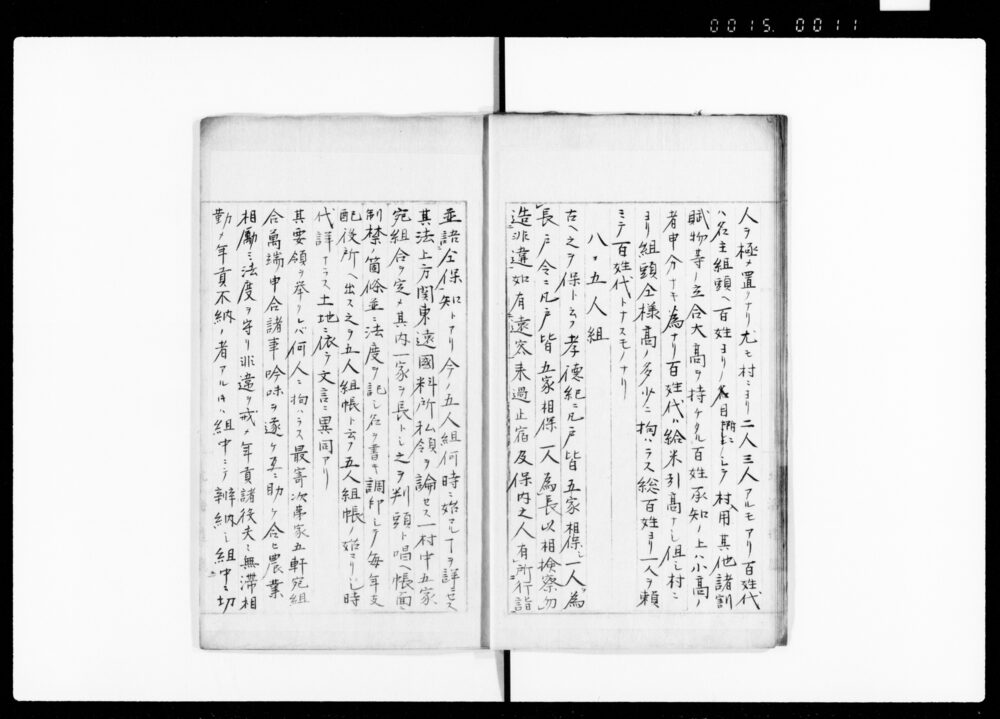 0015. 0011
人ヲ極メ置ノナリ尤モ村ニヨリ二人三人アルモアリ百姓代
ハ名主組頭ヘ百姓ヨリノ名目附ニシテ村用其他諸割
賦物等ノ立合大高ヲ持ケタル百姓承知ノ上ハ小高ノ
者申分ナキ為ナリ百姓代ハ給米引高ナシ但シ村ニ
ヨリ組頭仝様高ノ多少ニ拘ハラス総百姓ヨリ一人ヲ頼
ミテ百姓代トナスモノナリ
八、五人組
古ヘ之ヲ保ト云フ孝德紀ニ凡戸皆五家相保シ一人ヲ為
長戸令ニ凡戸皆五家相保一人為長以相撿察勿
造非違如有遠客来過止宿及保内之人有所行詣
並語仝保知トアリ今ノ五人組何時ニ始マルヿヲ詳ニセス
其法上方関東遠國料所私領ヲ論セス一村中五家
宛組合ヲ定メ其内一家ヲ長トシ之ヲ判頭ト唱ヘ帳面ニ
制禁ノ箇條並ニ法度ヲ記シ名ヲ書キ調印シテ毎年支
配役所ヘ出ス之ヲ五人組帳ト云フ五人組帳ノ始マリシ時
代詳ナラス土地ニ依テ文言ニ異同アリ
其要領ヲ挙クレバ何人ニ拘ハラス最寄次第家五軒宛組
合萬端申合諸事吟味ヲ遂ケ互ニ助ケ合ヒ農業
相勵ミ法度ヲ守リ非違ヲ戒メ年貢諸役夫ニ無滞相
勤メ年貢不納ノ者アルトキハ組中ニテ辨納シ組中ニ切